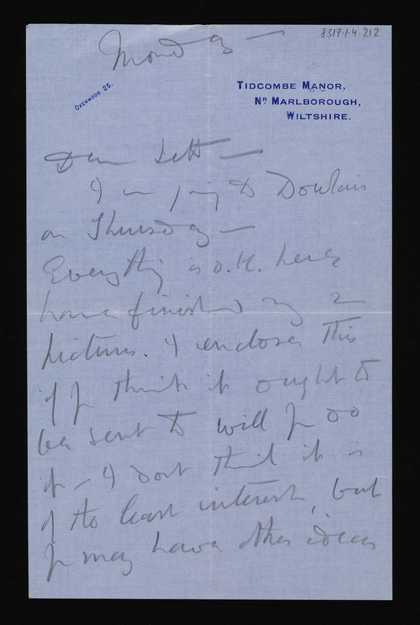 8317.1.4.212
Monday —
OXENWOOD 25.
TIDCOMBE MANOR,
NR MARLBOROUGH,
WILTSHIRE.
Dear Lett —
I am going to Dowlais
on Thursday —
Everything is O.K. here &
have finished my 2
pictures. I enclose this
if you think it ought to
be sent to will you do
it — I dont think it is
of the least interest, but
you may have other ideas